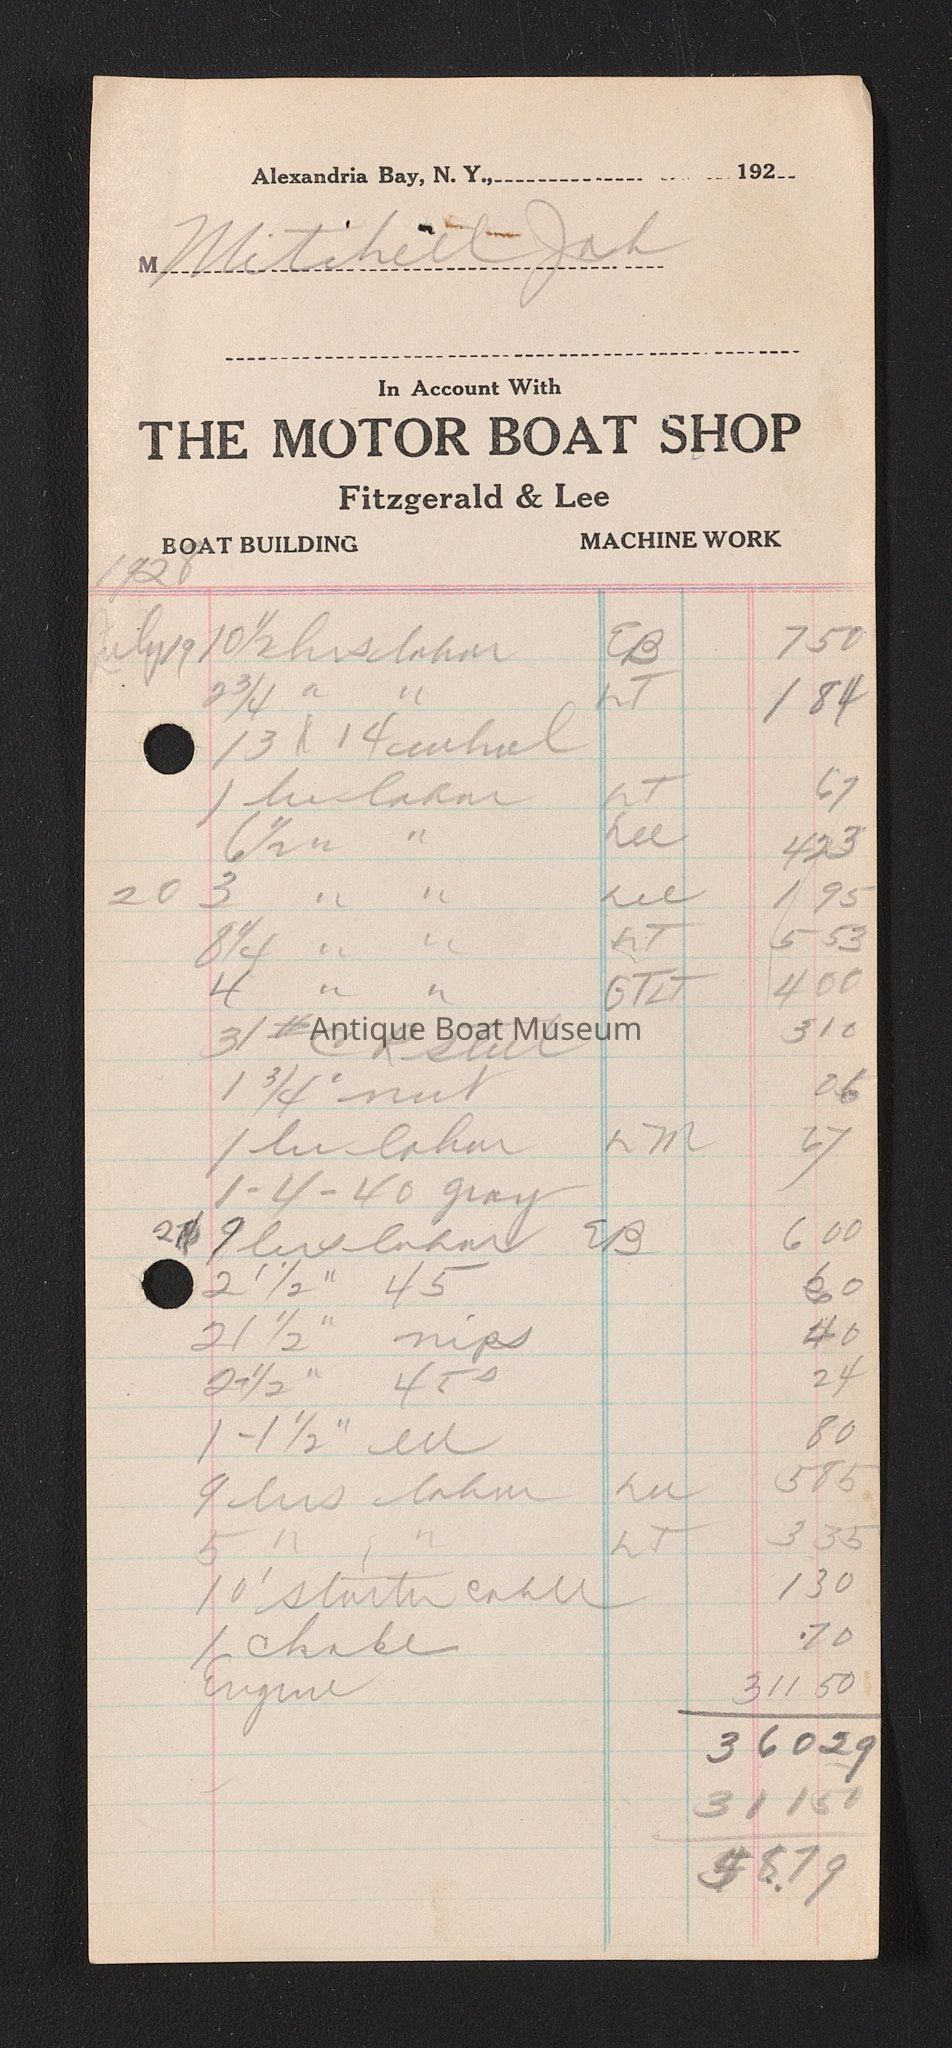 Alexandria Bay, N. Y., 192
M Mitchell Job
In Account With
THE MOTOR BOAT SHOP
Fitzgerald & Lee
BOAT BUILDING MACHINE WORK
1928
July 19 10 1/2 hrs labor EB 7 50
2 3/4 " " LT 1 84
13 X 14 wheel
1 hr labor LT 67
6 1/2 " " Lee 4 23
20 3 " " Lee 1 95
8 1/4 " " LT 5 53
4 " " GTLT 4 00
31 # CR Steel 3 10
Antique Boat Museum
1 3/4" nut 06
1 hr labor LM 67
1-4-40 gray
21 9 hrs labor EB 6 00
2 1 1/2" 45 60
2 1 1/2" nips 40
2 1/2" 45s 24
1-1 1/2" ell 80
9 hrs labor Lee 5 85
5 " " LT 3 35
10' starter cable 1 30
1 choke .70
Engine 311 50
360 29
311 50
48.79